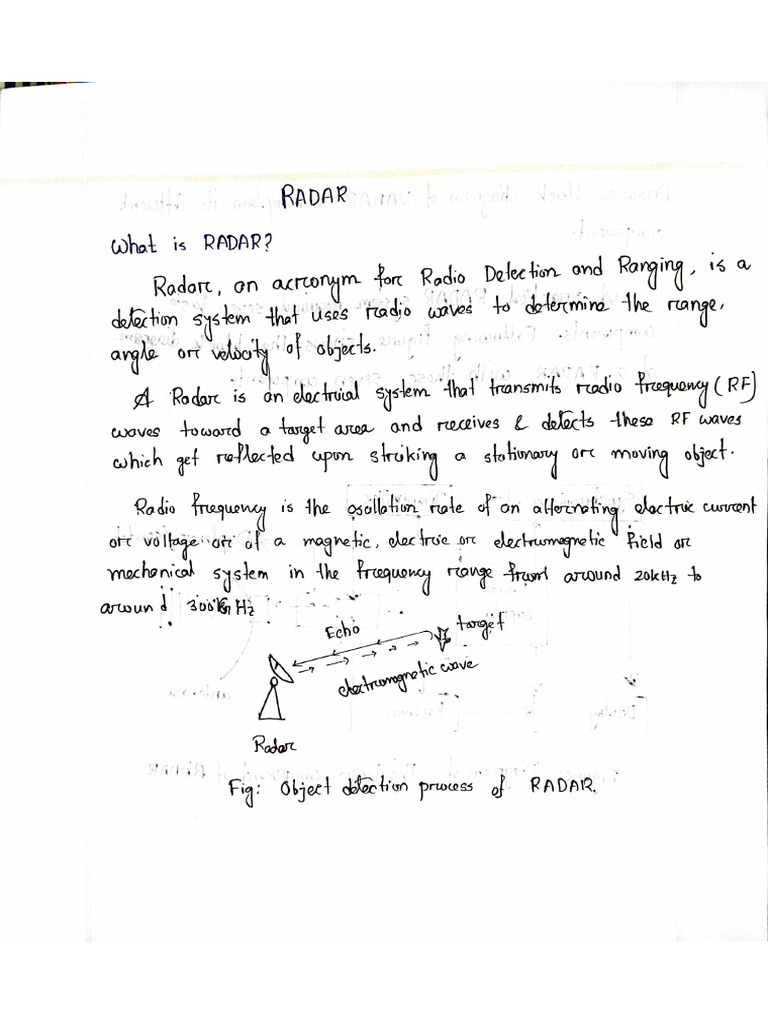 RADAR
What is RADAR?
Radar, an acronym for Radio Detection and Ranging, is a
detection system that uses radio waves to determine the range,
angle or velocity of objects.
A Radar is an electruial system that transmits radio frequency (RF)
waves toward a target area and receives & detects these RF waves
which get reflected upon striking a stationary or moving object.
Radio frequency is the oscillation rate of an alternating electric current
or voltage or of a magnetic, electric or electromagnetic field or
mechanical system in the frequency range from around 20kHz to
around 300GHz
Echo
target
electromagnetic wave
Radar
Fig: Object detection process of RADAR.